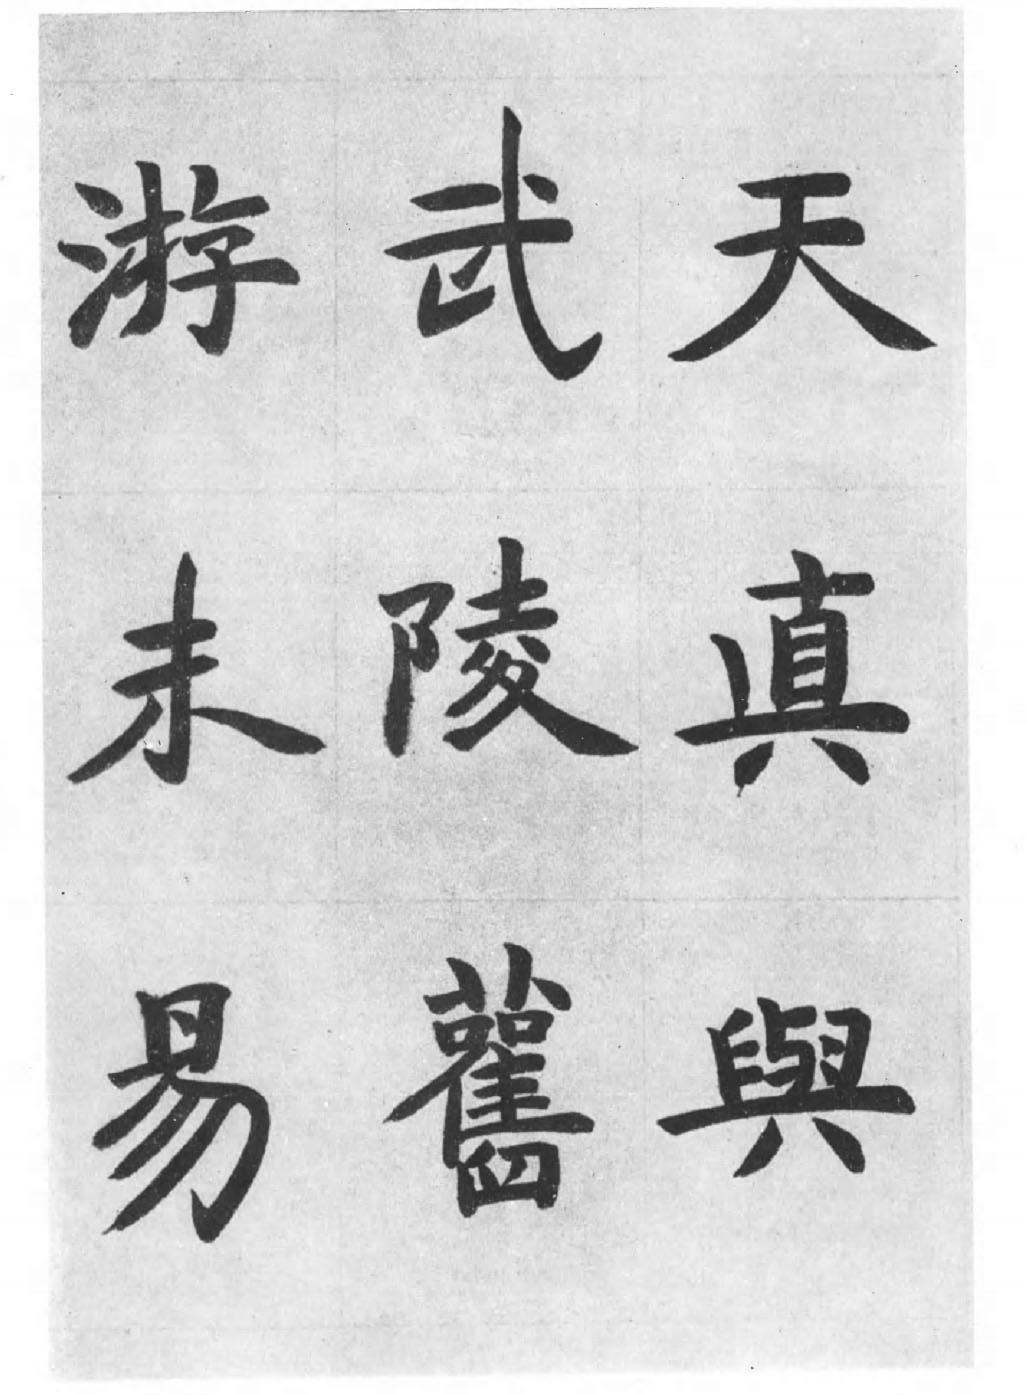 天真與
武陵舊
游未易